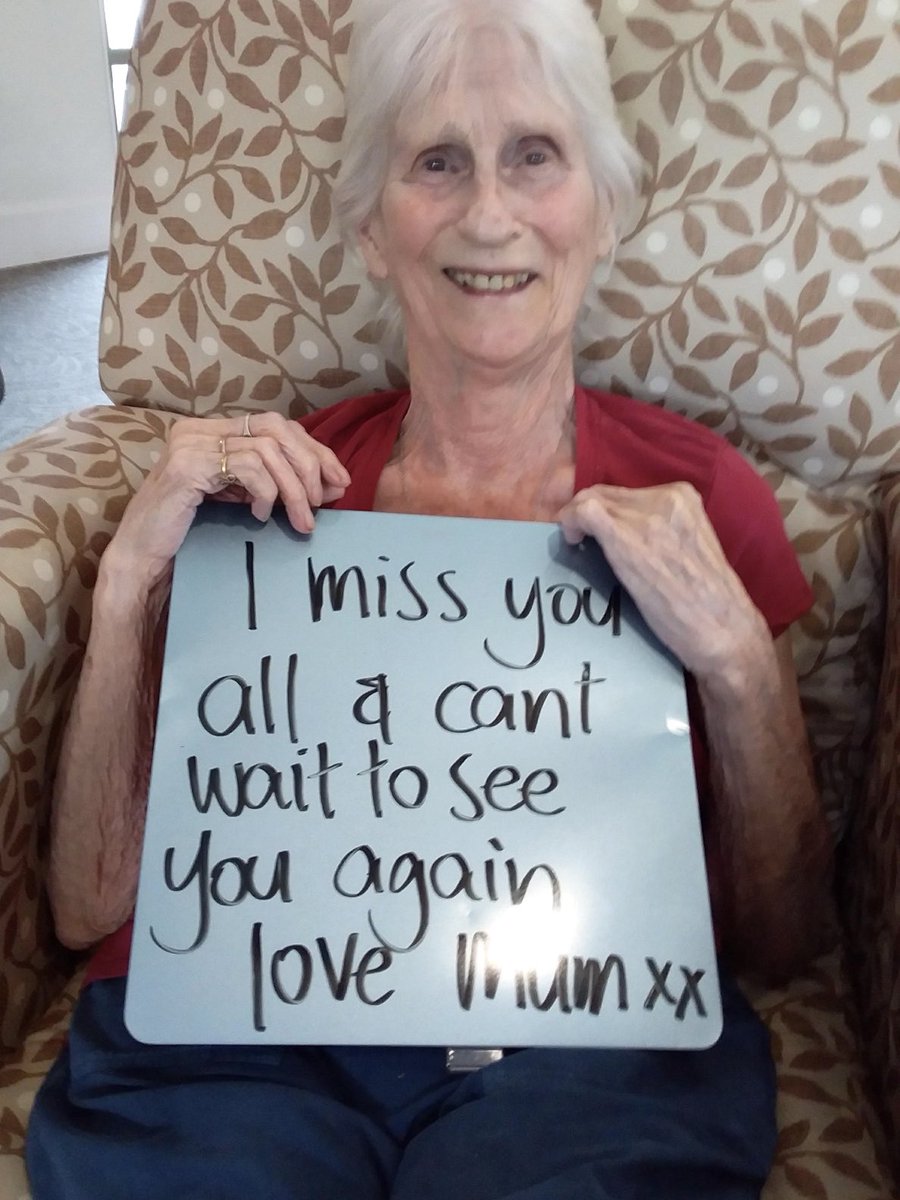 I miss you
all & cant
wait to see
you again
love Mum xx